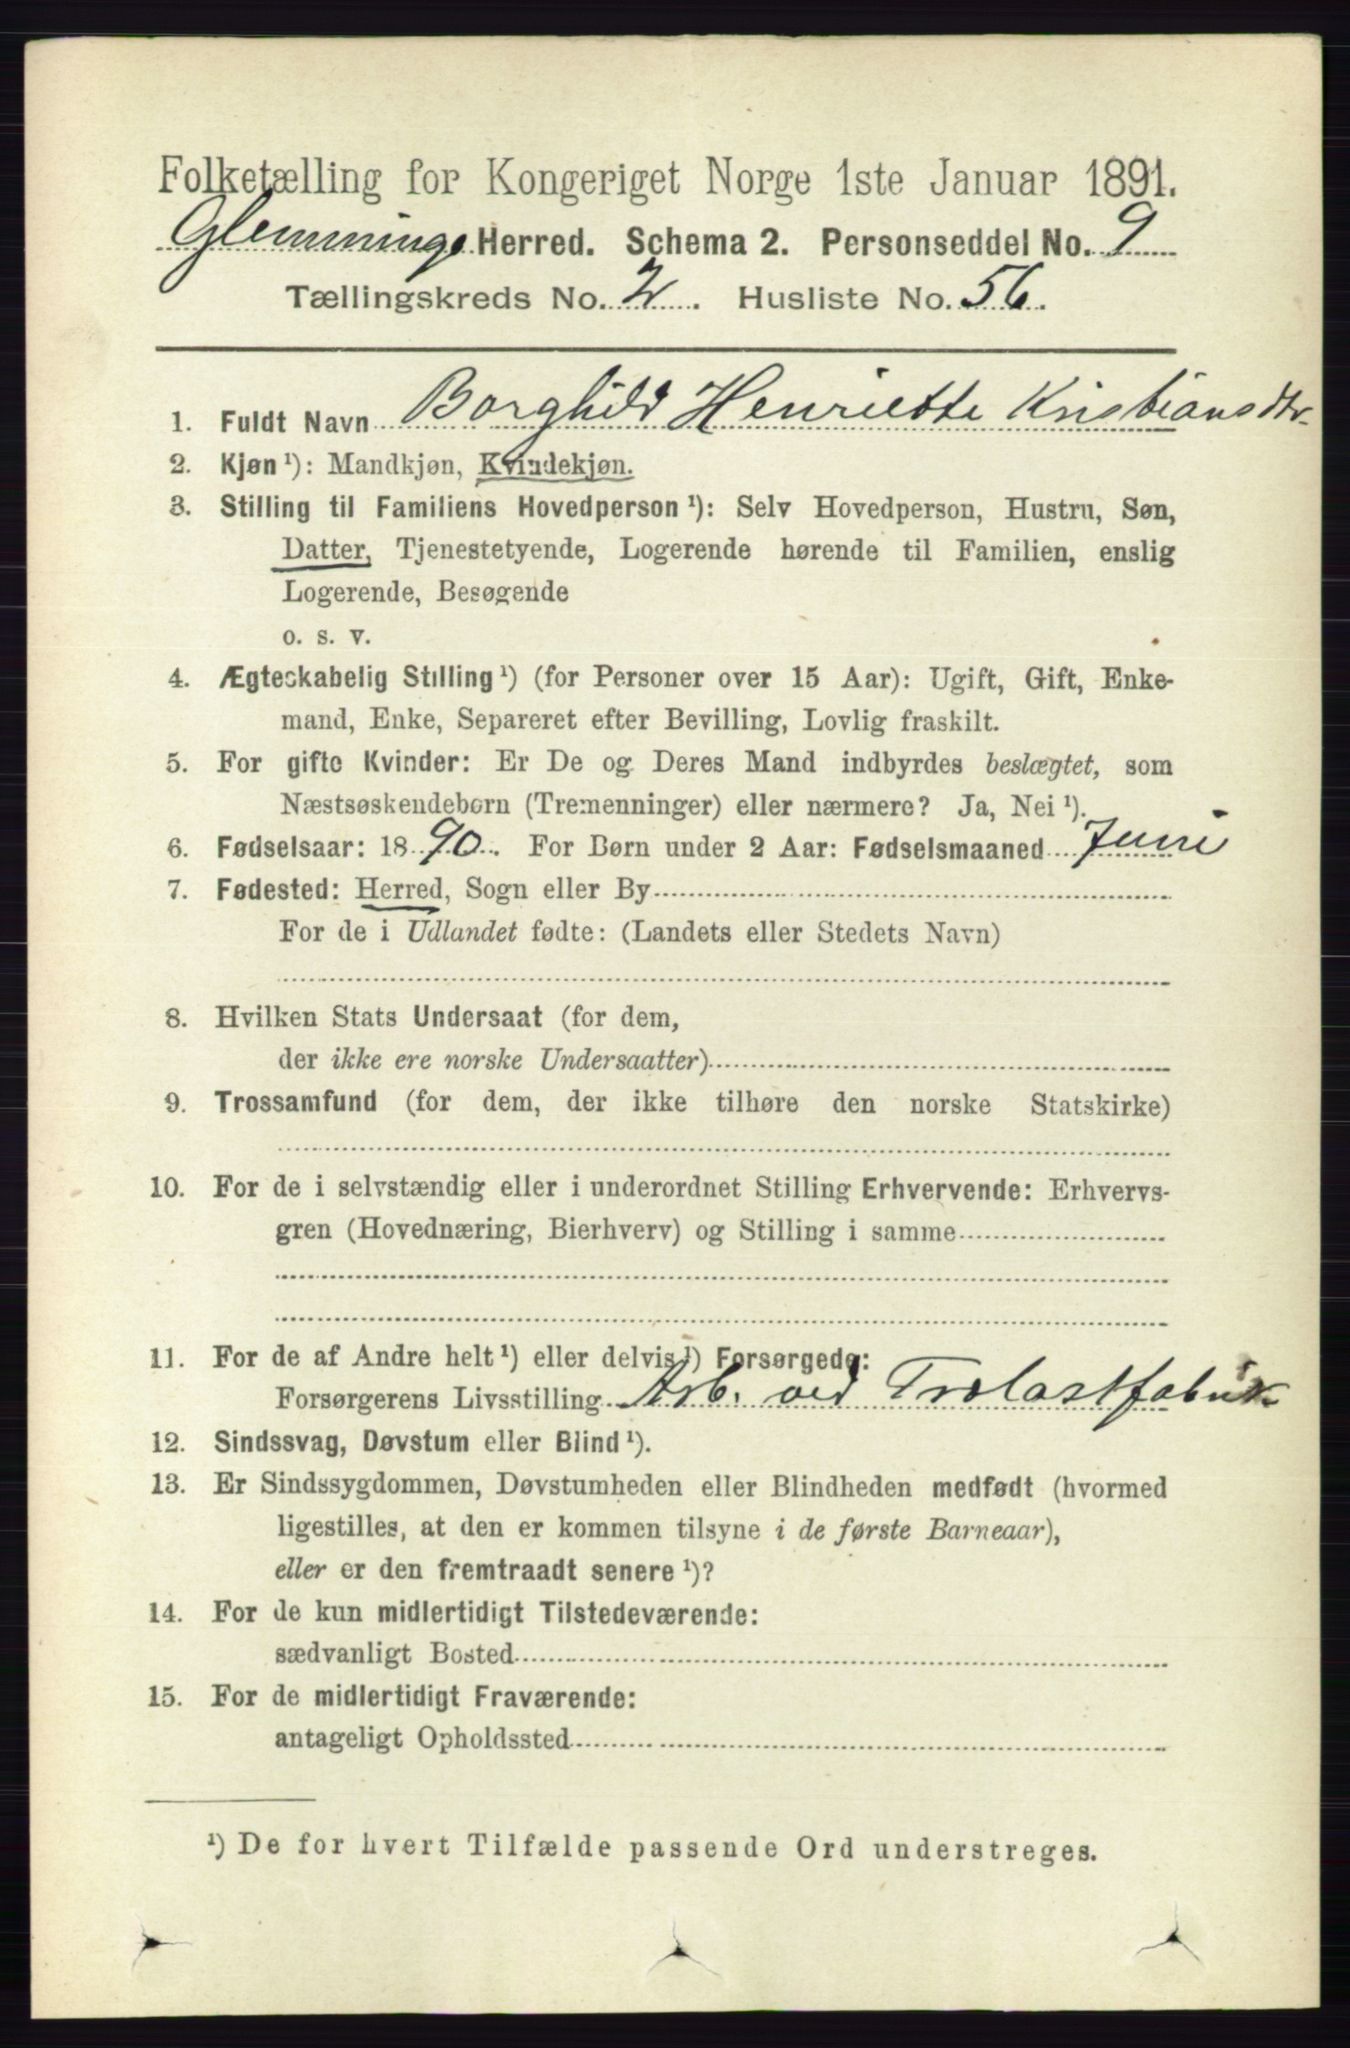 Folketælling for Kongeriget Norge 1ste Januar 1891.
Glemminge Herred. Schema 2. Personseddel No. 9
Tællingskreds No. 2. Husliste No. 56.
1. Fuldt Navn Borghild Henriette Kristiansdtr.
2. Kjøn ¹): Mandkjøn, Kvindekjøn.
3. Stilling til Familiens Hovedperson ¹): Selv Hovedperson, Hustru, Søn,
Datter, Tjenestetyende, Logerende hørende til Familien, enslig
Logerende, Besøgende
o. s. v.
4. Ægteskabelig Stilling ¹) (for Personer over 15 Aar): Ugift, Gift, Enke-
mand, Enke, Separeret efter Bevilling, Lovlig fraskilt.
5. For gifte Kvinder: Er De og Deres Mand indbyrdes beslægtet, som
Næstsøskendebørn (Tremenninger) eller nærmere? Ja, Nei ¹).
6. Fødselsaar: 1890. For Børn under 2 Aar: Fødselsmaaned Juni
7. Fødested: Herred, Sogn eller By
For de i Udlandet fødte: (Landets eller Stedets Navn)
8. Hvilken Stats Undersaat (for dem,
der ikke ere norske Undersaatter)
9. Trossamfund (for dem, der ikke tilhøre den norske Statskirke)
10. For de i selvstændig eller i underordnet Stilling Erhvervende: Erhvervs-
gren (Hovednæring, Bierhverv) og Stilling i samme
11. For de af Andre helt ¹) eller delvis ¹) Forsørgede:
Forsørgerens Livsstilling Arb. ved Trælastfabrik
12. Sindssvag, Døvstum eller Blind ¹).
13. Er Sindssygdommen, Døvstumheden eller Blindheden medfødt (hvormed
ligestilles, at den er kommen tilsyne i de første Barneaar),
eller er den fremtraadt senere ¹)?
14. For de kun midlertidigt Tilstedeværende:
sædvanligt Bosted
15. For de midlertidigt Fraværende:
antageligt Opholdssted
¹) De for hvert Tilfælde passende Ord understreges.